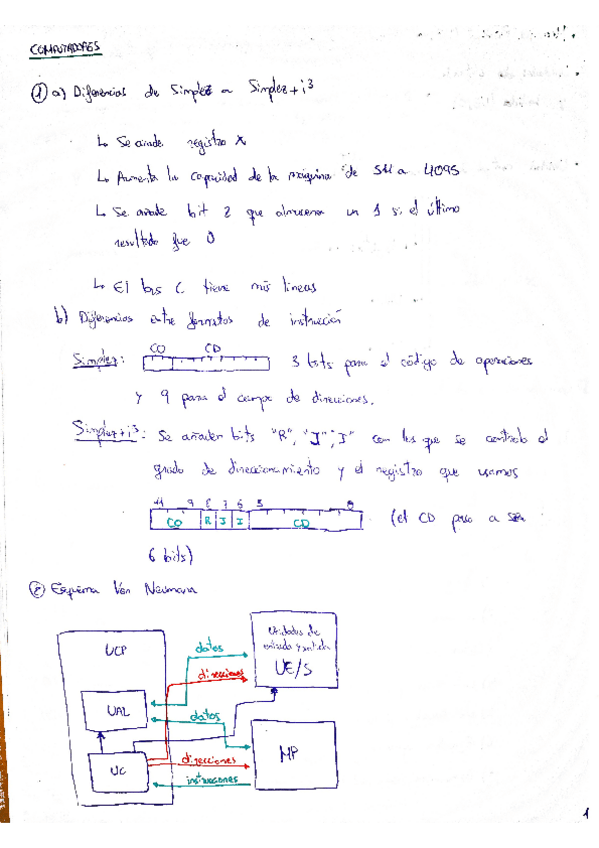 COMPUTADORES
① a) Diferencias de Simplez a Simplez+i³
↳ Se añade registro X
↳ Aumenta la capacidad de la máquina de 511 a 4095
↳ Se añade bit Z que almacena un 1 si el último
resultado fue 0
↳ El bus C tiene más líneas
b) Diferencias entre formatos de instrucción
CO CD
Simplez: 3 bits para el código de operaciones
y 9 para el campo de direcciones.
Simplez+i³: Se añaden bits "R", "I" con los que se controla el
grado de direccionamiento y el registro que usamos
11 9 8 7 6 5 0
CO R I I CD (el CD pasa a ser
6 bits)
② Esquema Von Neumann
UCP
UAL
UC
datos
direcciones
datos
direcciones
instrucciones
Unidades de
entrada y salida
UE/S
MP
1